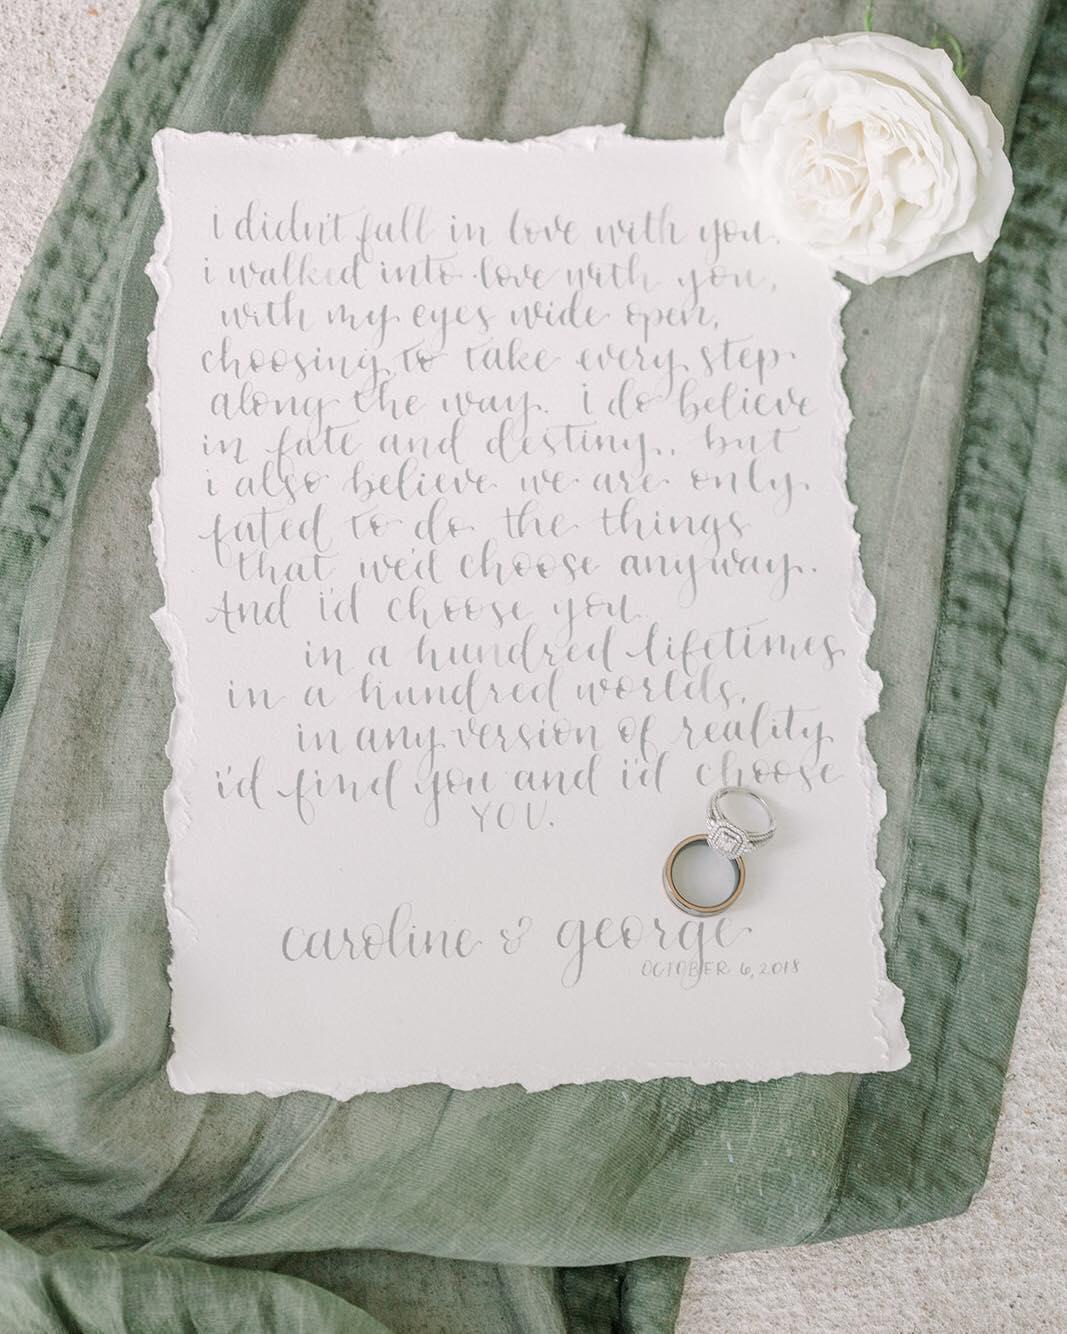 i didn't fall in love with you.
i walked into love with you,
with my eyes wide open,
choosing to take every step
along the way. i do believe
in fate and destiny, but
i also believe we are only
fated to do the things
that we'd choose anyway.
And i'd choose you
in a hundred lifetimes
in a hundred worlds,
in any version of reality
i'd find you and i'd choose
YOU.
caroline & george
OCTOBER 6, 2018